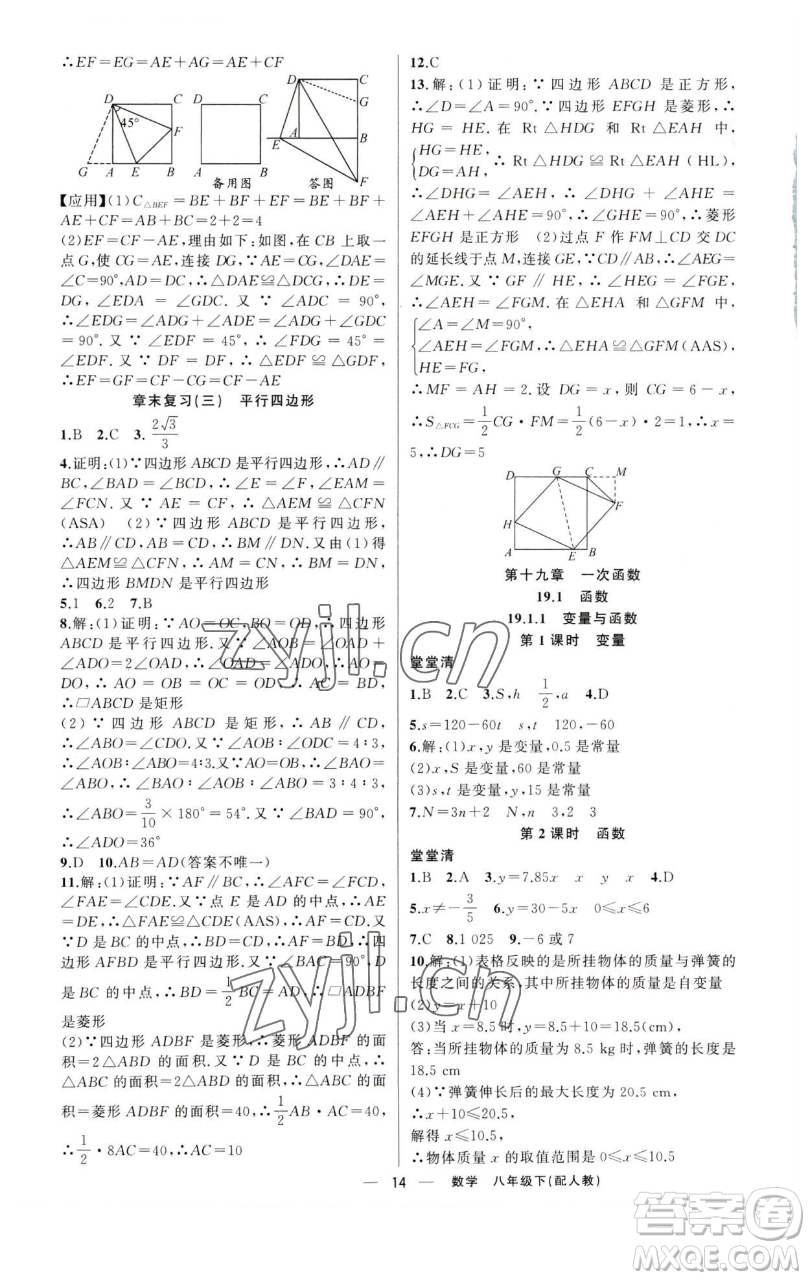 ∴EF=EG=AE+AG=AE+CF
D C D C D C
45° F G
G A E B A B E A B
备用图 答图 F
【应用】(1)C△BEF=BE+BF+EF=BE+BF+
AE+CF=AB+BC=2+2=4
(2)EF=CF-AE,理由如下:如图,在CB上取一
点G,使CG=AE,连接DG,则易证∠DAE=
∠C=90°,AD=DC,∴△DAE≌△DCG,∴DE=
DG,∠EDA=∠GDC.又∵∠ADC=90°,
∴∠EDG=∠ADG+∠ADE=∠ADG+∠GDC
=90°.又∵∠EDF=45°,∴∠FDG=45°=
∠EDF.又∵DF=DF,∴△EDF≌△GDF,
∴EF=GF=CF-CG=CF-AE
章末复习(三) 平行四边形
1.B 2.C 3.2√3/3
4.证明:(1)∵四边形ABCD是平行四边形,∴AD∥
BC,∠BAD=∠BCD,∴∠E=∠F,∠EAM=
∠FCN.又∵AE=CF,∴△AEM≌△CFN
(ASA) (2)∵四边形ABCD是平行四边形,
∴AB∥CD,AB=CD,∴BM∥DN.又由(1)得
△AEM≌△CFN,∴AM=CN,∴BM=DN,
∴四边形BMDN是平行四边形
5.1 6.2 7.B
8.解:(1)证明:∵AO=OC,BO=OD,∴四边形
ABCD是平行四边形.∵∠AOB=∠OAD+
∠ADO=2∠OAD,∴∠OAD=∠ADO,
∴AO=OD,∴AO=OB=OC=OD,∴AC=BD,
∴□ABCD是矩形
(2)∵四边形ABCD是矩形,∴AB∥CD,
∴∠ABO=∠CDO.又∵∠AOB∶∠ODC=4∶3,
∴∠AOB∶∠ABO=4∶3.又∵AO=BO,∴∠BAO
=∠ABO,∴∠BAO∶∠AOB∶∠ABO=3∶4∶3,
∴∠ABO=3/10×180°=54°.又∵∠BAD=90°,
∴∠ADO=36°
9.D 10.AB=AD(答案不唯一)
11.解:(1)证明:∵AF∥BC,∴∠AFC=∠FCD,
∠FAE=∠CDE.又∵点E是AD的中点,∴AE
=DE,∴△FAE≌△CDE(AAS),∴AF=CD.又
∵D是BC的中点,∴BD=CD,∴AF=BD,∴四边
形AFBD是平行四边形.又∵∠BAC=90°,D
是BC的中点,∴BD=1/2BC=AD,∴□ADBF
是菱形
(2)∵四边形ADBF是菱形,∴菱形ADBF的面
积=2△ABD的面积.又∵D是BC的中点,∴
△ABC的面积=2△ABD的面积=菱形ADBF的面
积=菱形ADBF的面积=40,∴1/2AB·AC=40,
∴1/2·8AC=40,∴AC=10
12.C
13.解:(1)证明:∵四边形ABCD是正方形,
∴∠D=∠A=90°.∵四边形EFGH是菱形,∴
HG=HE.在Rt△HDG和Rt△EAH中,
{HG=HE,
DG=AH, ∴Rt△HDG≌Rt△EAH(HL),
∴∠DHG=∠AEH,∴∠DHG+∠AHE=
∠AEH+∠AHE=90°,∴∠GHE=90°,∴菱形
EFGH是正方形 (2)过点F作FM⊥CD交DC
的延长线于点M,连接GE,∵CD∥AB,∴∠AEG=
∠MGE.又∵GF∥HE,∴∠HEG=∠FGE,
∴∠AEH=∠FGM.在△EHA和△GFM中,
{∠A=∠M=90°,
∠AEH=∠FGM,∴△EHA≌△GFM(AAS),
HE=FG
∴MF=AH=2.设DG=x,则CG=6-x,
∴S△FCG=1/2CG·FM=1/2(6-x)·2=1,∴x=
5,∴DG=5
D G C M
F
H
A E B
第十九章 一次函数
19.1 函数
19.1.1 变量与函数
第1课时 变量
堂堂清
1.B 2.C 3.S,h 1/2,a 4.D
5.s=120-60t s,t 120,-60
6.解:(1)x,y是变量,0.5是常量
(2)x,S是变量,60是常量
(3)s,t是变量,y,15是常量
7.N=3n+2 N,n 3,2 3
第2课时 函数
堂堂清
1.B 2.A 3.y=7.85x x y x 4.D
5.x≠-3/5 6.y=30-5x 0≤x≤6
7.C 8.1 025 9.-6或7
10.解:(1)表格反映的是所挂物体的质量与弹簧的
长度之间的关系,其中所挂物体的质量是自变量
(2)y=x+10
(3)当x=8.5时,y=8.5+10=18.5(cm),
答:当所挂物体的质量为8.5 kg时,弹簧的长度是
18.5 cm
(4)∵弹簧伸长后的最大长度为20.5 cm,
∴x+10≤20.5,
解得x≤10.5,
∴物体质量x的取值范围是0≤x≤10.5
— 14 — 数学 八年级下(配人教)
zyjl.cn
zyjl.cn
答案圈
MXQE.COM